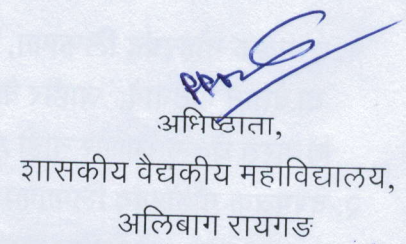 अधिष्ठाता,
शासकीय वैद्यकीय महाविद्यालय,
अलिबाग रायगड